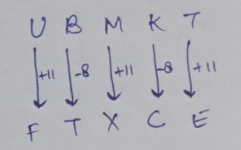 U B M K T
+11 -8 +11 -8 +11
F T X C E